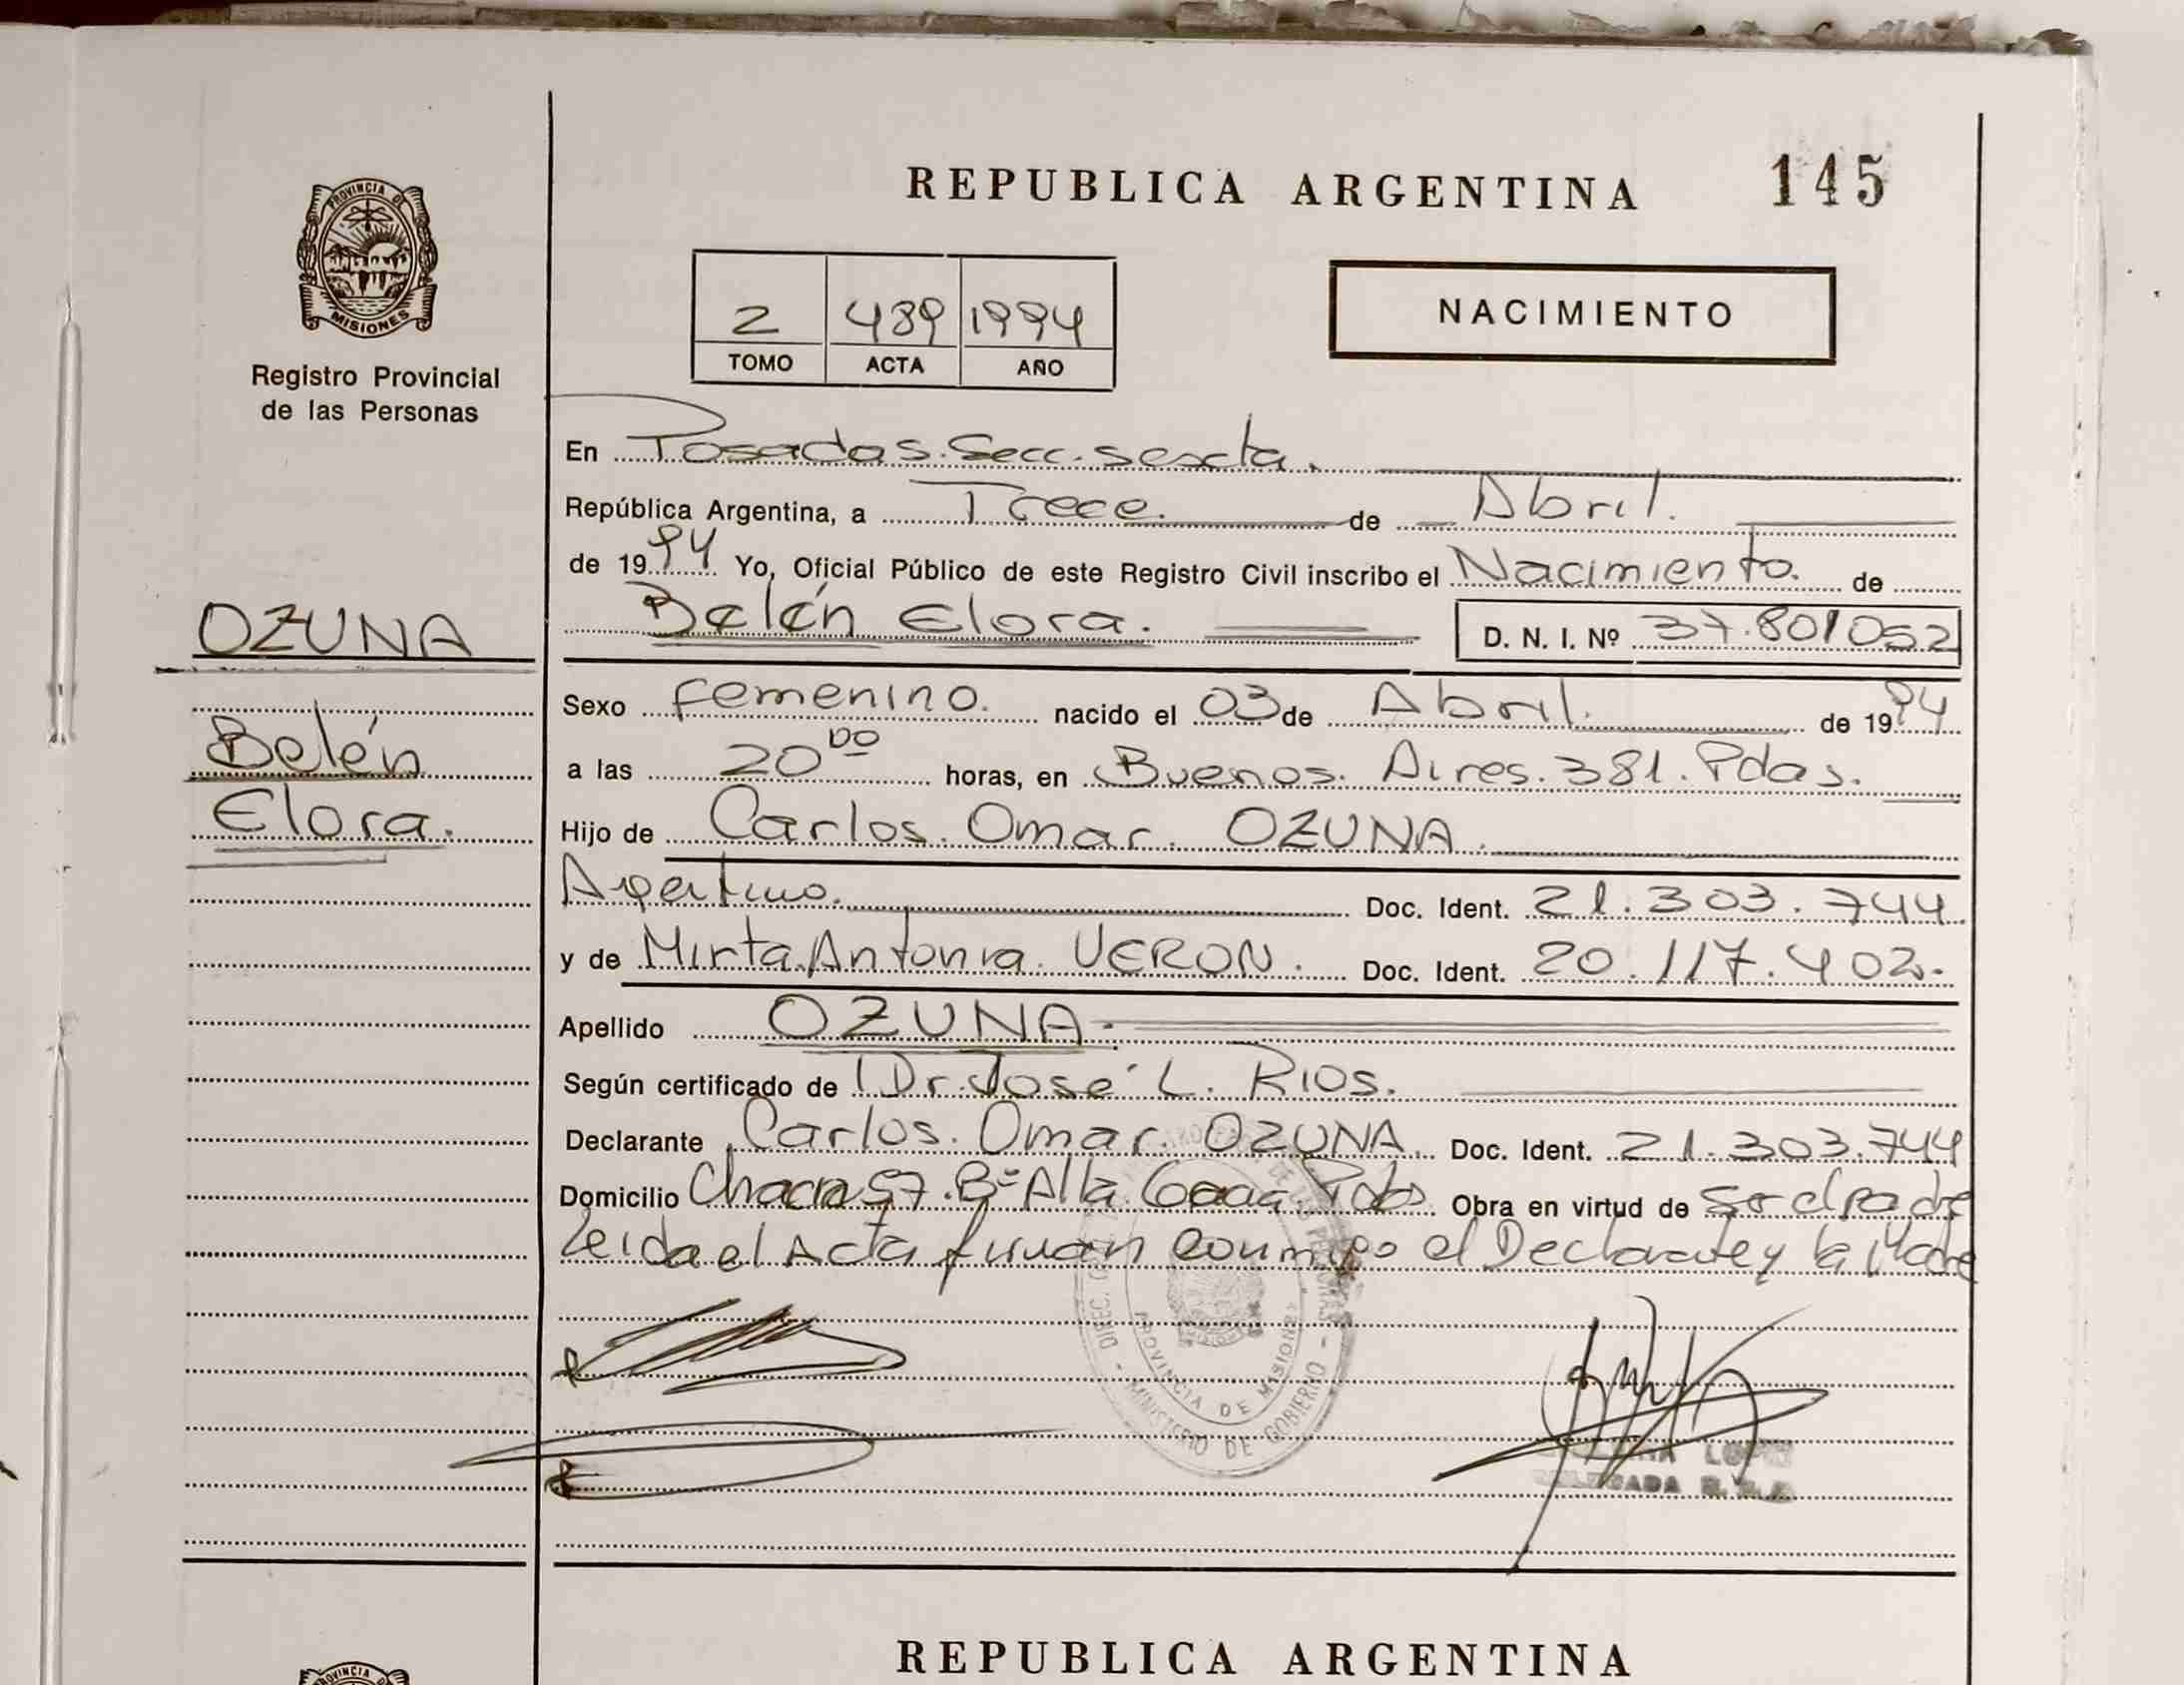 REPUBLICA ARGENTINA 145
PROVINCIA DE MISIONES
Registro Provincial
de las Personas
2 489 1994
TOMO ACTA AÑO
NACIMIENTO
En Posadas. Secc. sexta.
República Argentina, a Trece. de Abril.
de 1994 Yo, Oficial Público de este Registro Civil inscribo el Nacimiento. de
Belén Elora. D. N. I. Nº 37.801052
OZUNA
Belén
Elora.
Sexo femenino. nacido el 03 de Abril. de 1994
a las 20 00 horas, en Buenos. Aires. 381. Pdas.
Hijo de Carlos. Omar. OZUNA.
Argentino. Doc. Ident. 21.303.744
y de Mirta Antonia. VERON. Doc. Ident. 20.117.402.
Apellido OZUNA.
Según certificado de Dr. José L. Rios.
Declarante Carlos. Omar. OZUNA. Doc. Ident. 21.303.744
Domicilio Chacra 57. Bº Pdas Obra en virtud de Ser el padre
Leida el Acta firman conmigo el Declarante y la Madre
DE LAS PERSONAS
PROVINCIA DE MISIONES
MINISTERIO DE GOBIERNO
REPUBLICA ARGENTINA
PROVINCIA DE